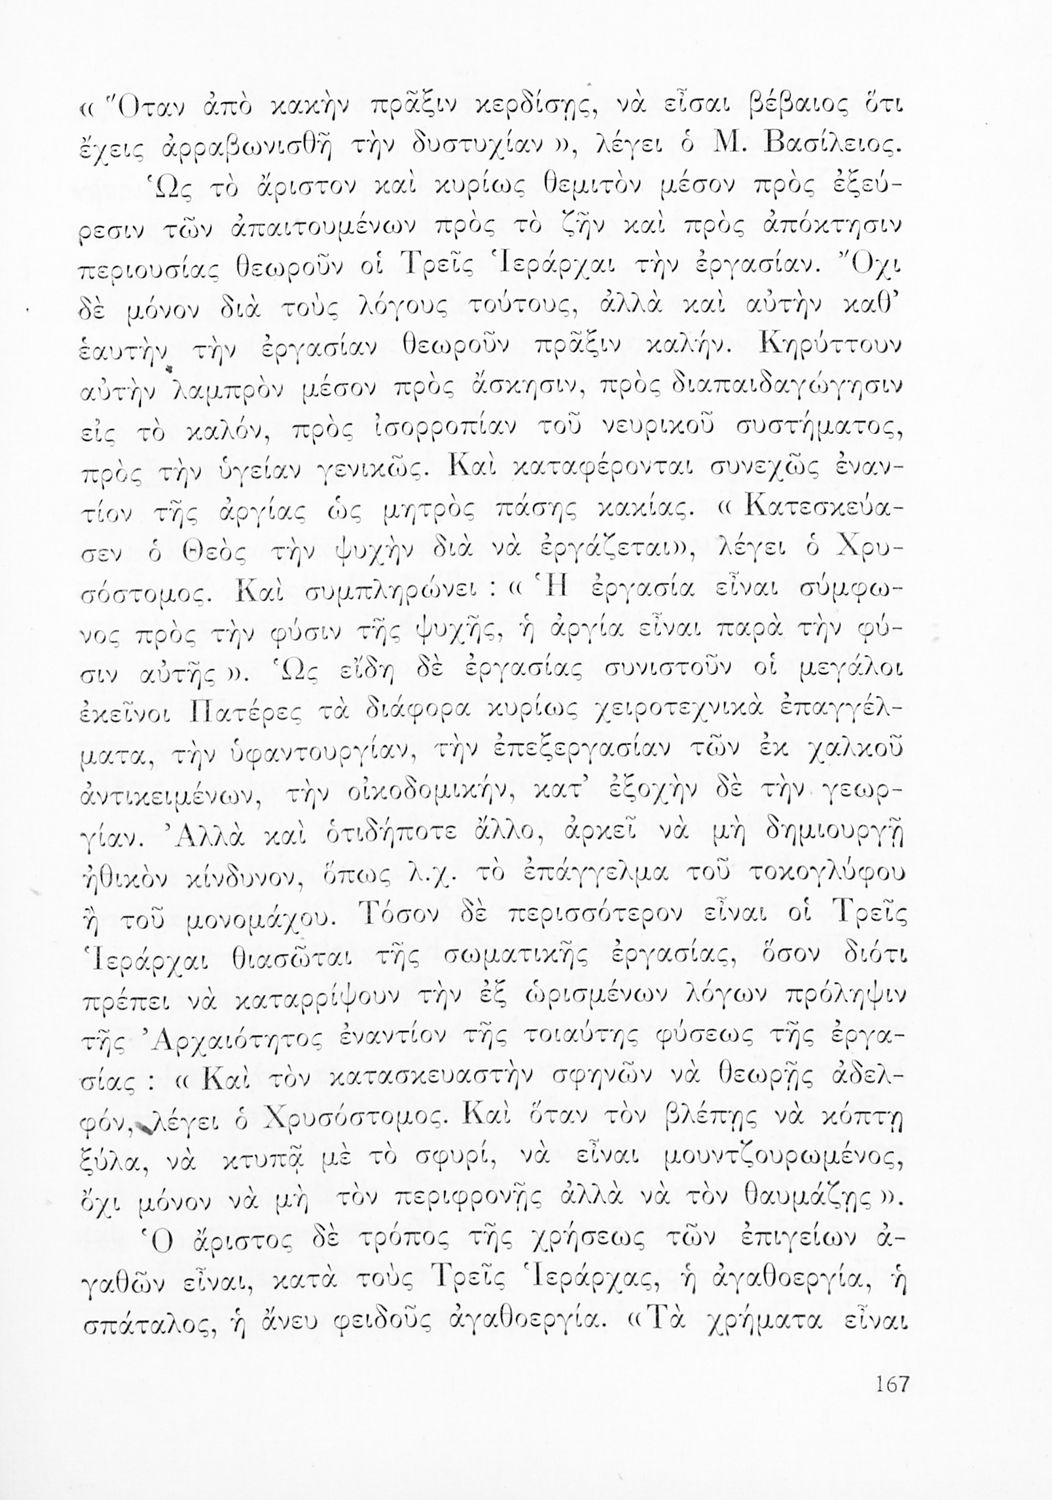 « Ὅταν ἀπὸ κακὴν πρᾶξιν κερδίσῃς, νὰ εἶσαι βέβαιος ὅτι
ἔχεις ἀρραβωνισθῆ τὴν δυστυχίαν », λέγει ὁ Μ. Βασίλειος.
Ὡς τὸ ἄριστον καὶ κυρίως θεμιτὸν μέσον πρὸς ἐξεύ-
ρεσιν τῶν ἀπαιτουμένων πρὸς τὸ ζῆν καὶ πρὸς ἀπόκτησιν
περιουσίας θεωροῦν οἱ Τρεῖς Ἱεράρχαι τὴν ἐργασίαν. Ὄχι
δὲ μόνον διὰ τοὺς λόγους τούτους, ἀλλὰ καὶ αὐτὴν καθ’
ἑαυτὴν τὴν ἐργασίαν θεωροῦν πρᾶξιν καλήν. Κηρύττουν
αὐτὴν λαμπρὸν μέσον πρὸς ἄσκησιν, πρὸς διαπαιδαγώγησιν
εἰς τὸ καλόν, πρὸς ἰσορροπίαν τοῦ νευρικοῦ συστήματος,
πρὸς τὴν ὑγείαν γενικῶς. Καὶ καταφέρονται συνεχῶς ἐναν-
τίον τῆς ἀργίας ὡς μητρὸς πάσης κακίας. « Κατεσκεύα-
σεν ὁ Θεὸς τὴν ψυχὴν διὰ νὰ ἐργάζεται», λέγει ὁ Χρυ-
σόστομος. Καὶ συμπληρώνει : « Ἡ ἐργασία εἶναι σύμφω-
νος πρὸς τὴν φύσιν τῆς ψυχῆς, ἡ ἀργία εἶναι παρὰ τὴν φύ-
σιν αὐτῆς ». Ὡς εἴδη δὲ ἐργασίας συνιστοῦν οἱ μεγάλοι
ἐκεῖνοι Πατέρες τὰ διάφορα κυρίως χειροτεχνικὰ ἐπαγγέλ-
ματα, τὴν ὑφαντουργίαν, τὴν ἐπεξεργασίαν τῶν ἐκ χαλκοῦ
ἀντικειμένων, τὴν οἰκοδομικήν, κατ’ ἐξοχὴν δὲ τὴν γεωρ-
γίαν. Ἀλλὰ καὶ ὁτιδήποτε ἄλλο, ἀρκεῖ νὰ μὴ δημιουργῇ
ἠθικὸν κίνδυνον, ὅπως λ.χ. τὸ ἐπάγγελμα τοῦ τοκογλύφου
ἢ τοῦ μονομάχου. Τόσον δὲ περισσότερον εἶναι οἱ Τρεῖς
Ἱεράρχαι θιασῶται τῆς σωματικῆς ἐργασίας, ὅσον διότι
πρέπει νὰ καταρρίψουν τὴν ἐξ ὡρισμένων λόγων πρόληψιν
τῆς Ἀρχαιότητος ἐναντίον τῆς τοιαύτης φύσεως τῆς ἐργα-
σίας : « Καὶ τὸν κατασκευαστὴν σφηνῶν νὰ θεωρῇς ἀδελ-
φόν, λέγει ὁ Χρυσόστομος. Καὶ ὅταν τὸν βλέπῃς νὰ κόπτῃ
ξύλα, νὰ κτυπᾷ μὲ τὸ σφυρί, νὰ εἶναι μουντζουρωμένος,
ὄχι μόνον νὰ μὴ τὸν περιφρονῇς ἀλλὰ νὰ τὸν θαυμάζῃς ».
Ὁ ἄριστος δὲ τρόπος τῆς χρήσεως τῶν ἐπιγείων ἀ-
γαθῶν εἶναι, κατὰ τοὺς Τρεῖς Ἱεράρχας, ἡ ἀγαθοεργία, ἡ
σπάταλος, ἡ ἄνευ φειδοῦς ἀγαθοεργία. «Τὰ χρήματα εἶναι
167